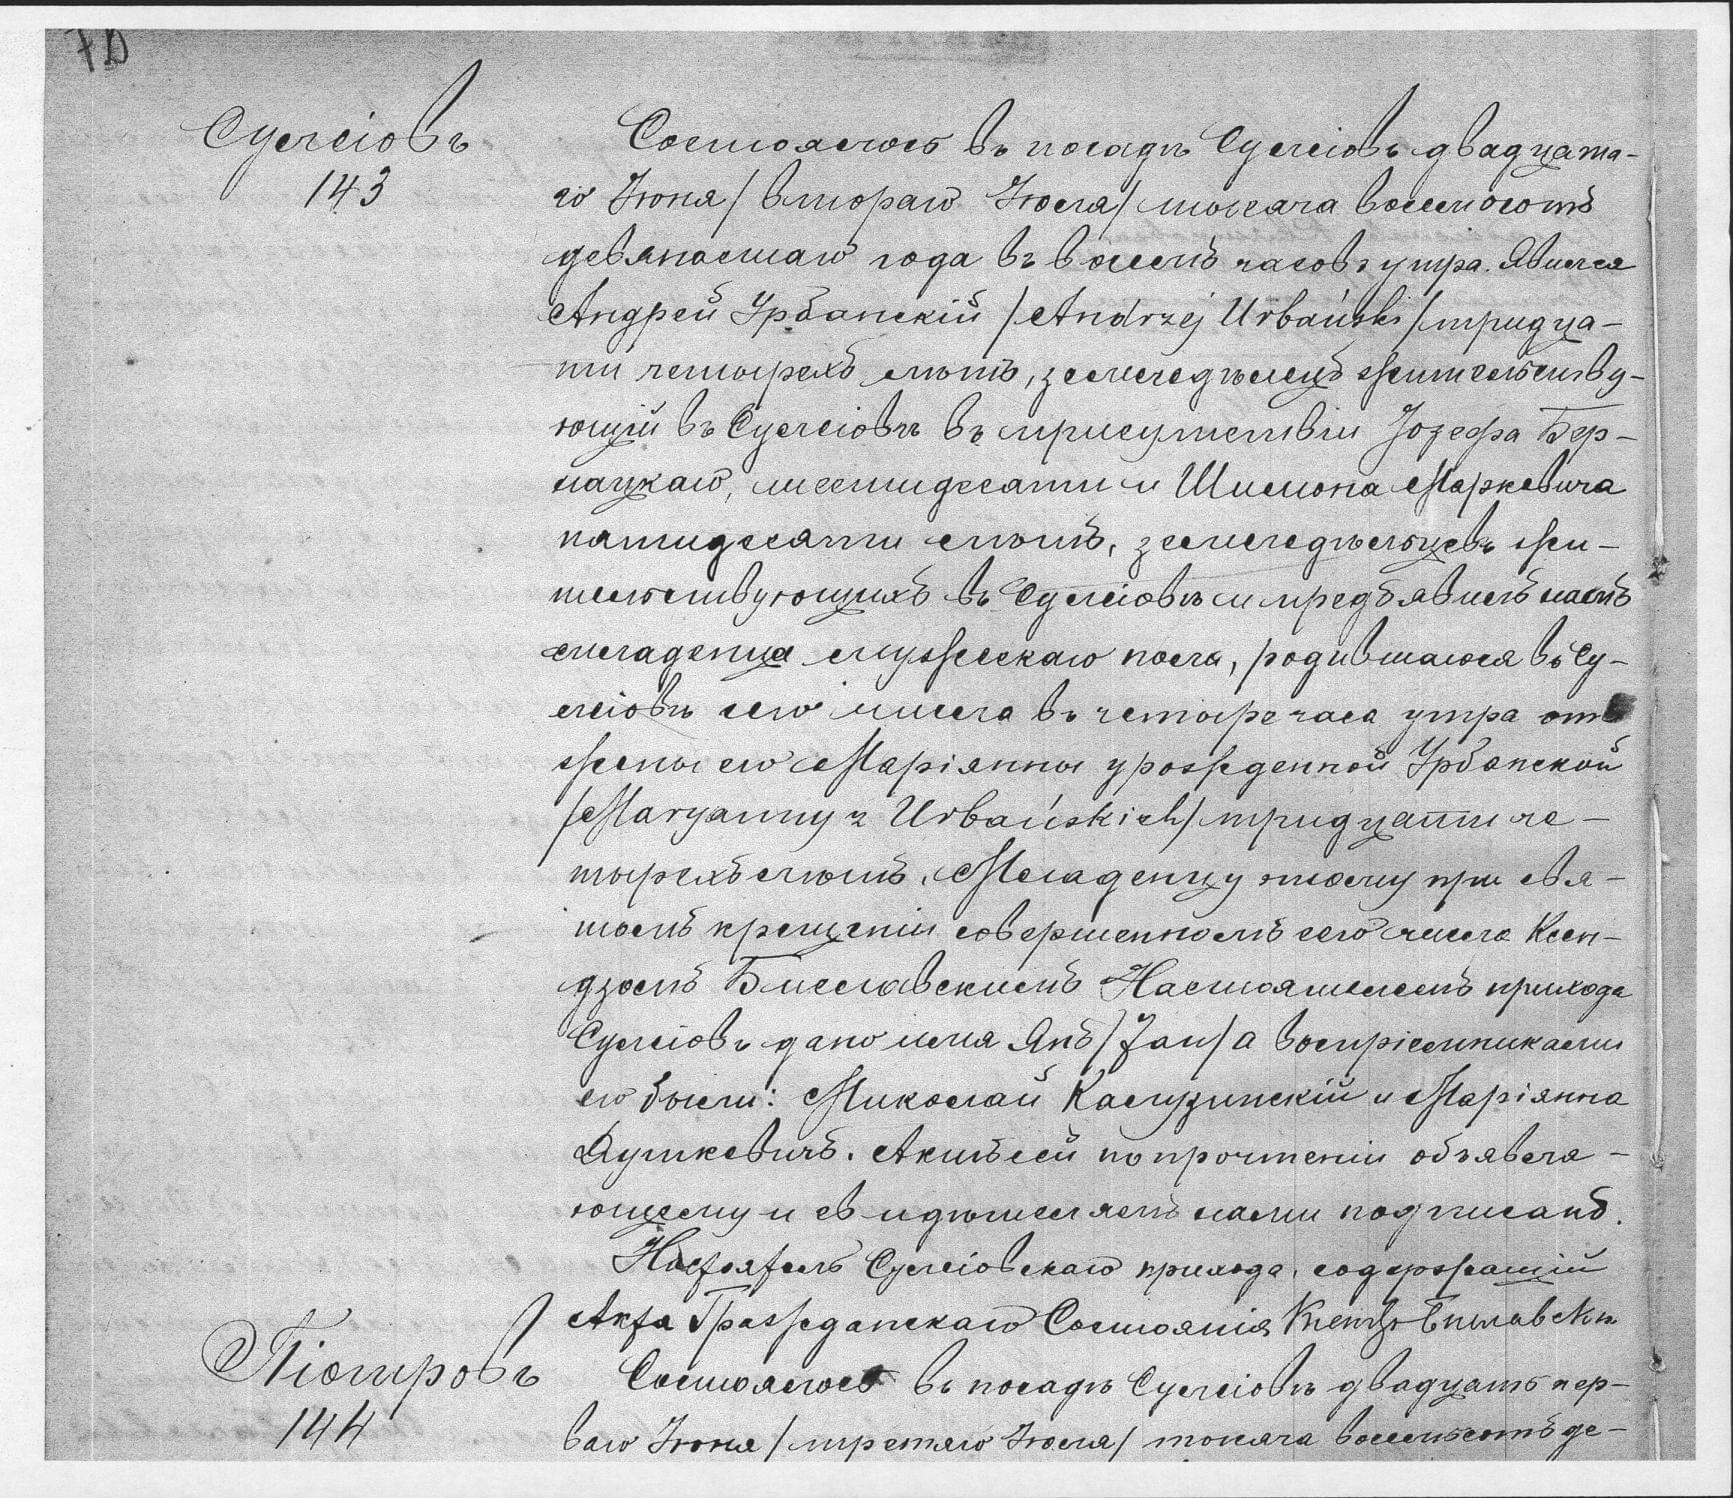 Сулеіовъ
143
Состоялось въ посадѣ Сулеіовъ двадцата-
го Іюня / втораго Іюля / тысяча восемьсотъ
девяностаго года въ восемь часовъ утра. Явился
Андрей Урбанскій / Andrzej Urbański / тридца-
ти четырехъ лѣтъ, земледѣлецъ жительству-
ющій въ Сулеіовѣ въ присутствіи Іозефа Бер-
нацкаго, шестидесяти и Шимона Маркевича
пятидесяти лѣтъ, земледѣльцевъ жи-
тельствующихъ въ Сулеіовѣ и предъявилъ намъ
младенца мужескаго пола, родившагося въ Су-
леіовѣ сего числа въ четыре часа утра отъ
жены его Маріянны урожденной Урбанской
/ Maryanny z Urbańskich / тридцати че-
тырехъ лѣтъ. Младенцу этому при свя-
томъ крещеніи совершенномъ сего числа Ксен-
дзомъ Настоятелемъ прихода
Сулеіовъ дано имя Янъ / Jan / а воспріемниками
его были: Миколай и Маріянна
Яушкевичъ. Актъ сей по прочтеніи объявля-
ющему и свидѣтелямъ нами подписанъ.
Настоятель Сулеіовскаго прихода, содержащій
Акта Гражданскаго Состоянія Ксендзъ
Піотровъ
144
Состоялось въ посадѣ Сулеіовѣ двадцать пер-
ваго Іюня / третяго Іюля / тысяча восемьсотъ де-